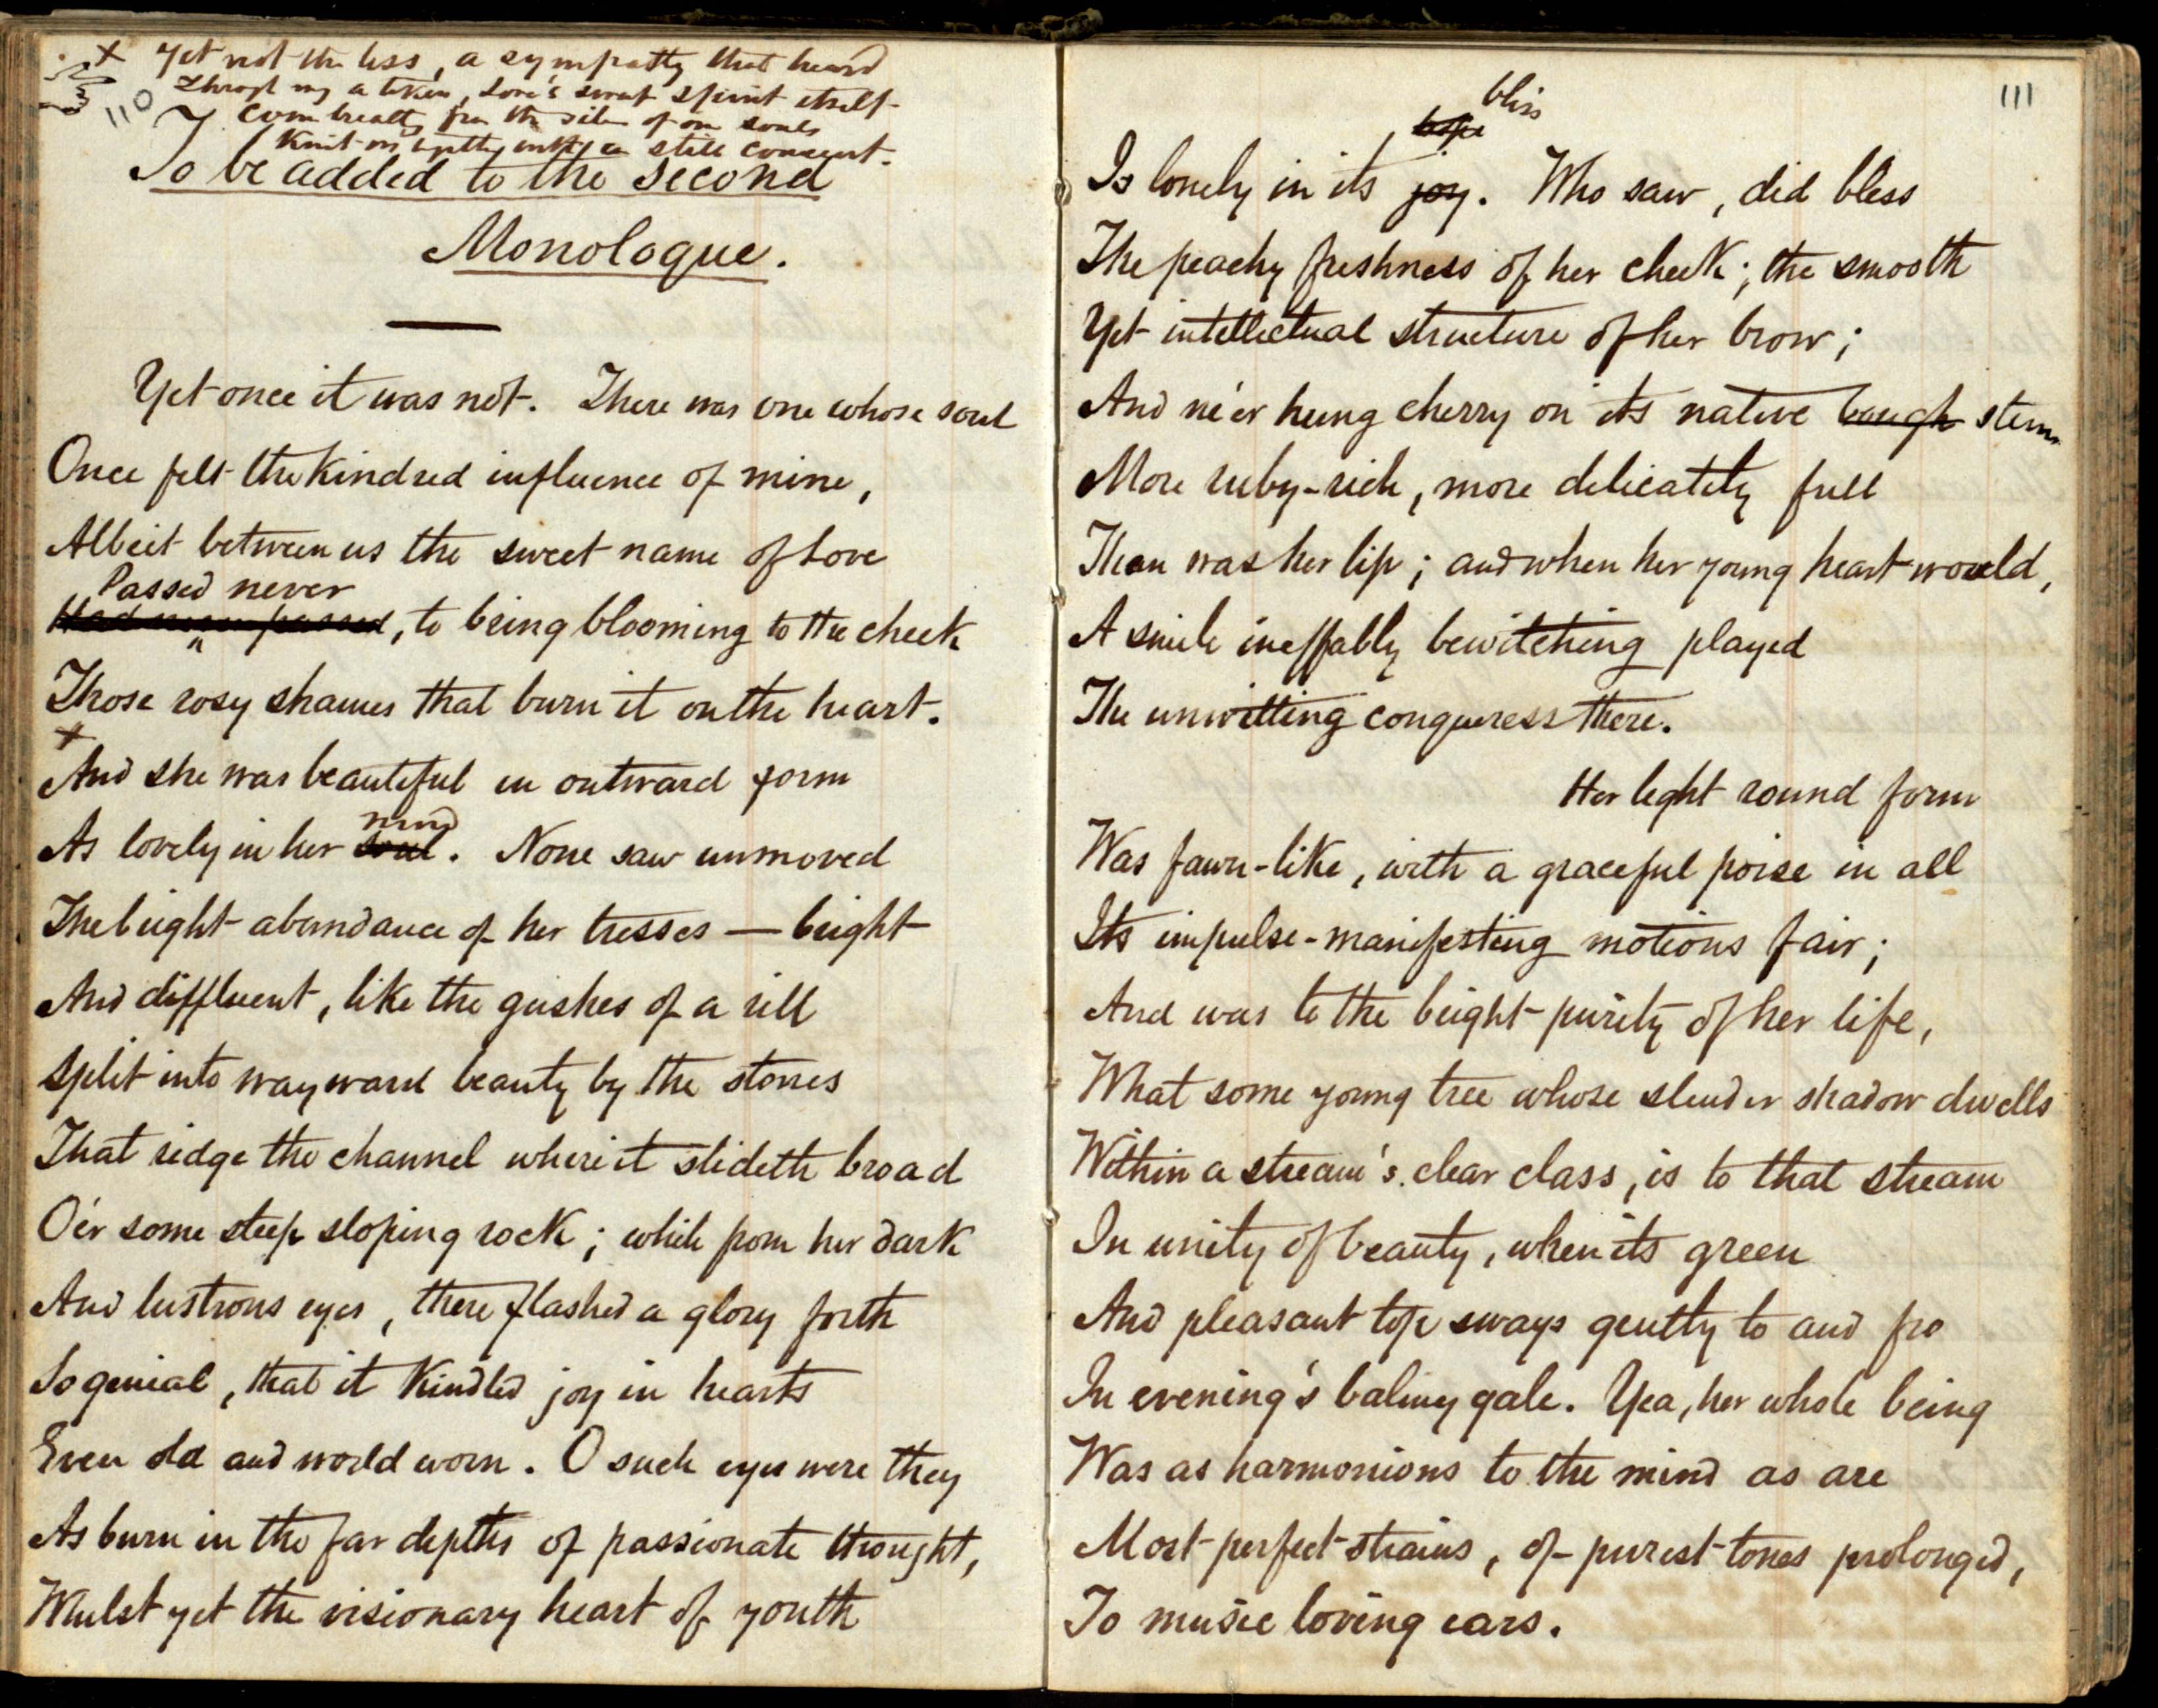 x Yet not the less, a sympathy that heard
Through many a token, Love's sweet spirit itself
Come breathing from the of our souls
Knit in unity a still consent.
110
To be added to the Second
Monologue.
Yet once it was not. There was one whose soul
Once felt the kindred influence of mine,
Albeit between us the sweet name of Love
Passed never
Had never passed, to bring blooming to the cheek
Those rosy shames that burn it on the heart.
x
And she was beautiful in outward form
mind
As lovely in her soul. None saw unmoved
The bright abundance of her tresses — bright
And diffluent, like the gushes of a rill
Split into wayward beauty by the stones
That ridge the channel where it slideth broad
O'er some steep sloping rock; while from her dark
And lustrous eyes, there flashed a glory forth
So genial, that it kindled joy in hearts
Even old and world worn. O such eyes were they
As burn in the far depths of passionate thought,
Whilst yet the visionary heart of youth
111
bliss
hope
Is lonely in its joy. Who saw, did bless
The peachy freshness of her cheek; the smooth
Yet intellectual structure of her brow;
And ne'er hung cherry on its native bough stem
More ruby-rich, more delicately full
Than was her lip; and when her young heart would,
A smile ineffably bewitching played
The unwitting conqueress there.
Her light round form
Was fawn-like, with a graceful poise in all
Its impulse-manifesting motions fair;
And was to the bright purity of her life,
What some young tree whose slender shadow dwells
Within a stream's clear class, is to that stream
In unity of beauty, when its green
And pleasant top sways gently to and fro
In evening's balmy gale. Yea, her whole being
Was as harmonious to the mind as are
Most perfect strains, of purest tones prolonged,
To music loving ears.